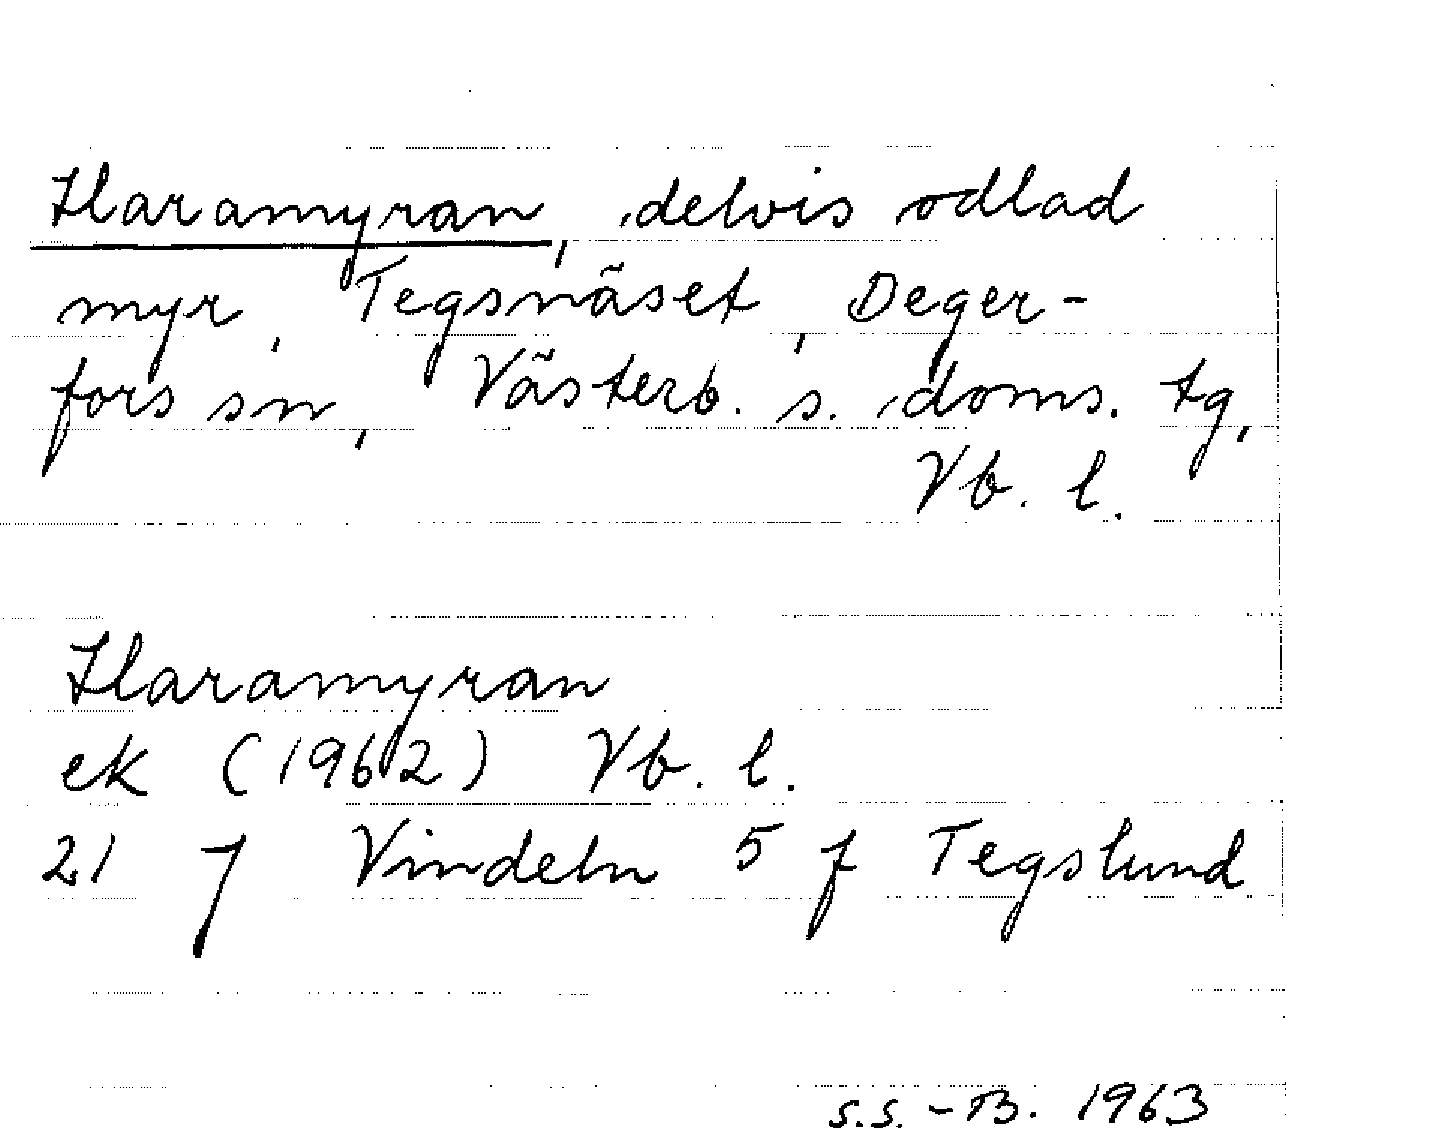 Haramyran, delvis odlad
myr, Tegsnäset, Deger-
fors sn, Västerb. s. doms. tg,
Vb. l.
Haramyran
ek (1962) Vb. l.
21 J Vindeln 5 f Tegslund
S.S. -B. 1963